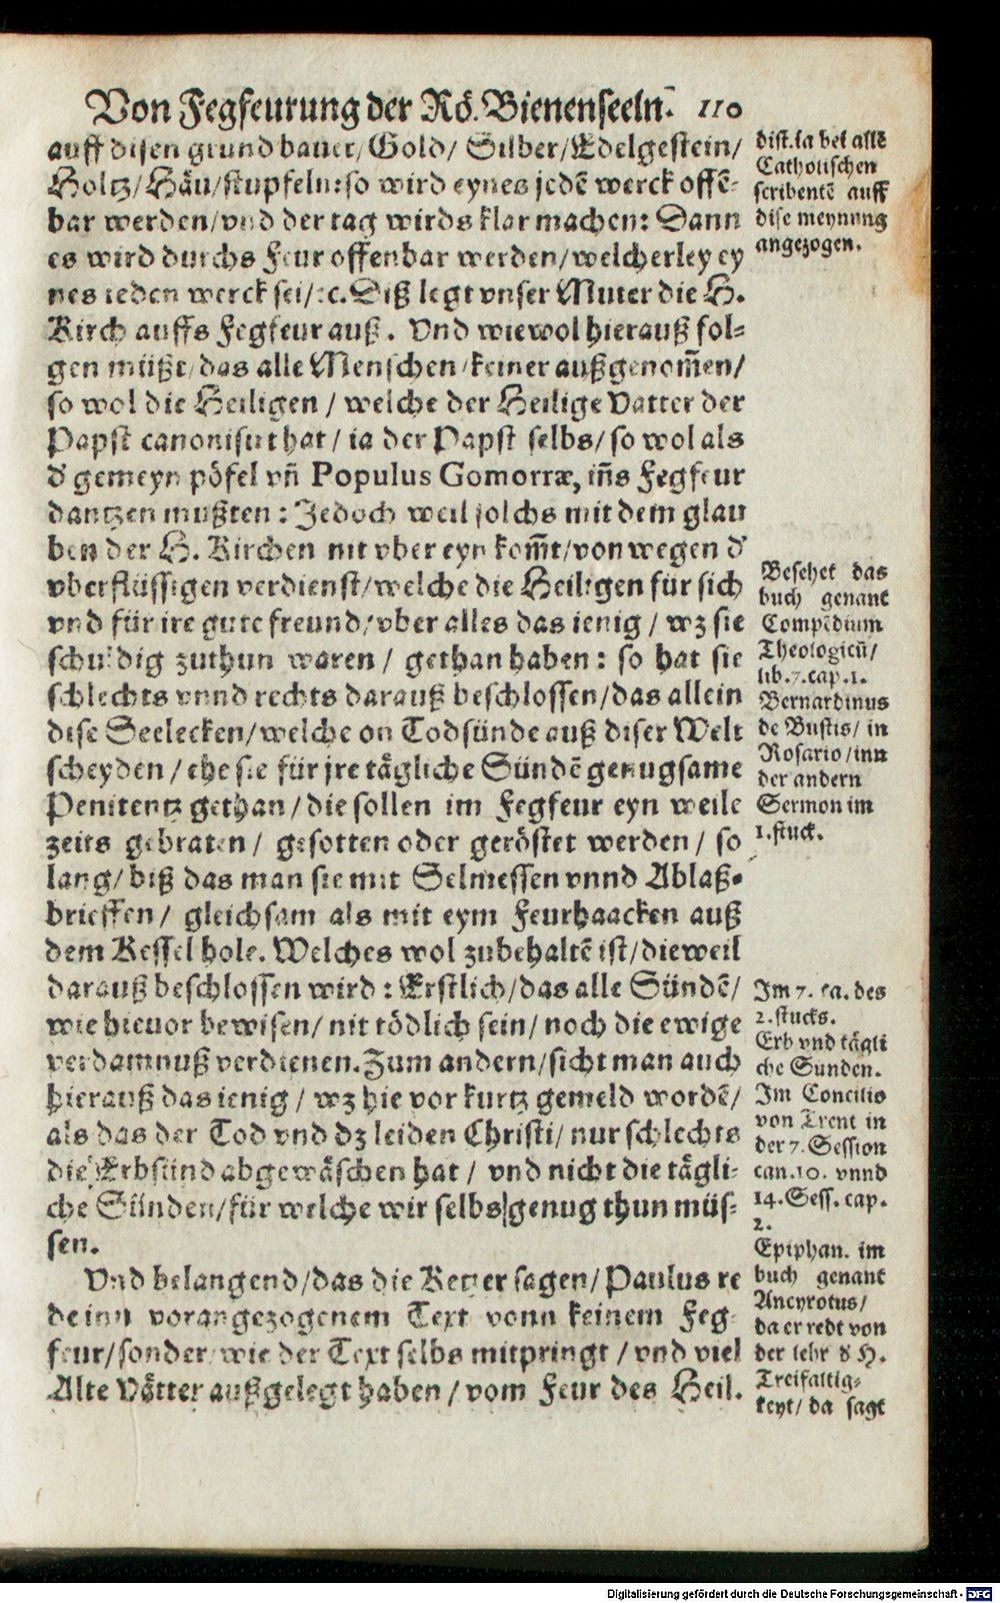 Von Fegfeurung der Rö. Bienenseeln. 110
auff disen grund bauet/ Gold/ Silber/ Edelgestein/
Holtz/ Häu/ stupfeln: so wird eynes jedē werck offē-
bar werden/ vnd der tag wirds klar machen: Dann
es wird durchs Feur offenbar werden/ welcherley ey
nes ieden werck sei/ ꝛc. Diß legt vnser Muter die H.
Kirch auffs Fegfeur auß. Vnd wiewol hierauß fol-
gen müßt/ das alle Menschen/ keiner außgenom̄en/
so wol die Heiligen / welche der Heilige Vatter der
Papst canonisirt hat / ia der Papst selbs/ so wol als
d' gemeyn pöfel vn̄ Populus Gomorræ, in̄s Fegfeur
dantzen mußten: Jedoch weil solchs mit dem glau
ben der H. Kirchen nit vber eyn kom̄t/ von wegen d'
vberflüssigen verdienst/ welche die Heiligen für sich
vnd für ire gute freund/ vber alles das ienig / wz sie
schuldig zuthun waren / gethan haben: so hat sie
schlechts vnnd rechts darauß beschlossen/ das allein
dise Seelecken/ welche on Todsünde auß diser Welt
scheyden / ehe sie für jre tägliche Sündē genugsame
Penitentz gethan / die sollen im Fegfeur eyn weile
zeits gebraten / gesotten oder geröstet werden / so
lang/ biß das man sie mit Selmessen vnnd Ablaß-
brieffen / gleichsam als mit eym Feurhaacken auß
dem Kessel hole. Welches wol zubehaltē ist/ dieweil
darauß beschlossen wird: Erstlich/ das alle Sündē/
wie hieuor bewisen/ nit tödlich sein/ noch die ewige
verdamnuß verdienen. Zum andern/ sicht man auch
hierauß das ienig / wz hie vor kurtz gemeld wordē/
als das der Tod vnd dz leiden Christi/ nur schlechts
die Erbsünd abgewäschen hat / vnd nicht die tägli-
che Sünden/ für welche wir selbs genug thun müs-
sen.
Vnd belangend/ das die Ketzer sagen/ Paulus re
de inn vorangezogenem Text vonn keinem Feg-
feur/ sonder wie der Text selbs mitpringt / vnd viel
Alte Vätter außgelegt haben / vom Feur des Heil.
dist. ia bei allē
Catholischen
scribentē auff
dise meynung
angezogen.
Besehet das
buch genant
Compēdium
Theologicū/
lib. 7. cap. 1.
Bernardinus
de Bustis/ in
Rosario/ inn
der andern
Sermon im
1. stuck.
Im 7. ca. des
2. stucks.
Erb vnd tägli
che Sunden.
Im Concilio
von Trent in
der 7. Session
can. 10. vnnd
14. Sess. cap.
2.
Epiphan. im
buch genant
Ancyrotus/
da er redt von
der lehr d H.
Treifaltig-
keyt/ da sagt
Digitalisierung gefördert durch die Deutsche Forschungsgemeinschaft - DFG